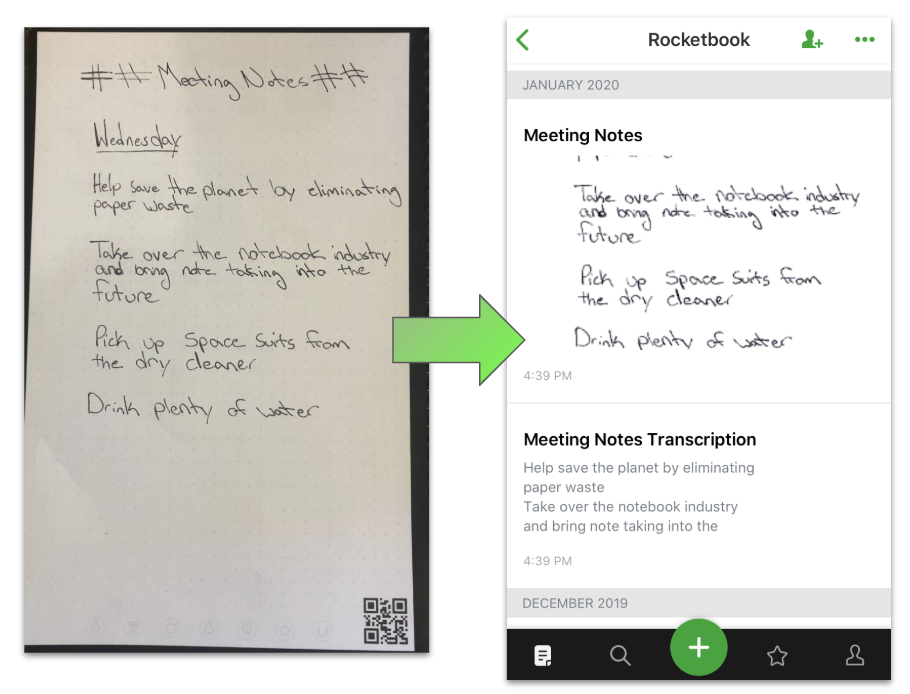 ## Meeting Notes ##
Wednesday
Help save the planet by eliminating
paper waste
Take over the notebook industry
and bring note taking into the
future
Pick up Space Suits from
the dry cleaner
Drink plenty of water
Rocketbook
JANUARY 2020
Meeting Notes
Take over the notebook industry
and bring note taking into the
future
Pick up Space Suits from
the dry cleaner
Drink plenty of water
4:39 PM
Meeting Notes Transcription
Help save the planet by eliminating
paper waste
Take over the notebook industry
and bring note taking into the
4:39 PM
DECEMBER 2019